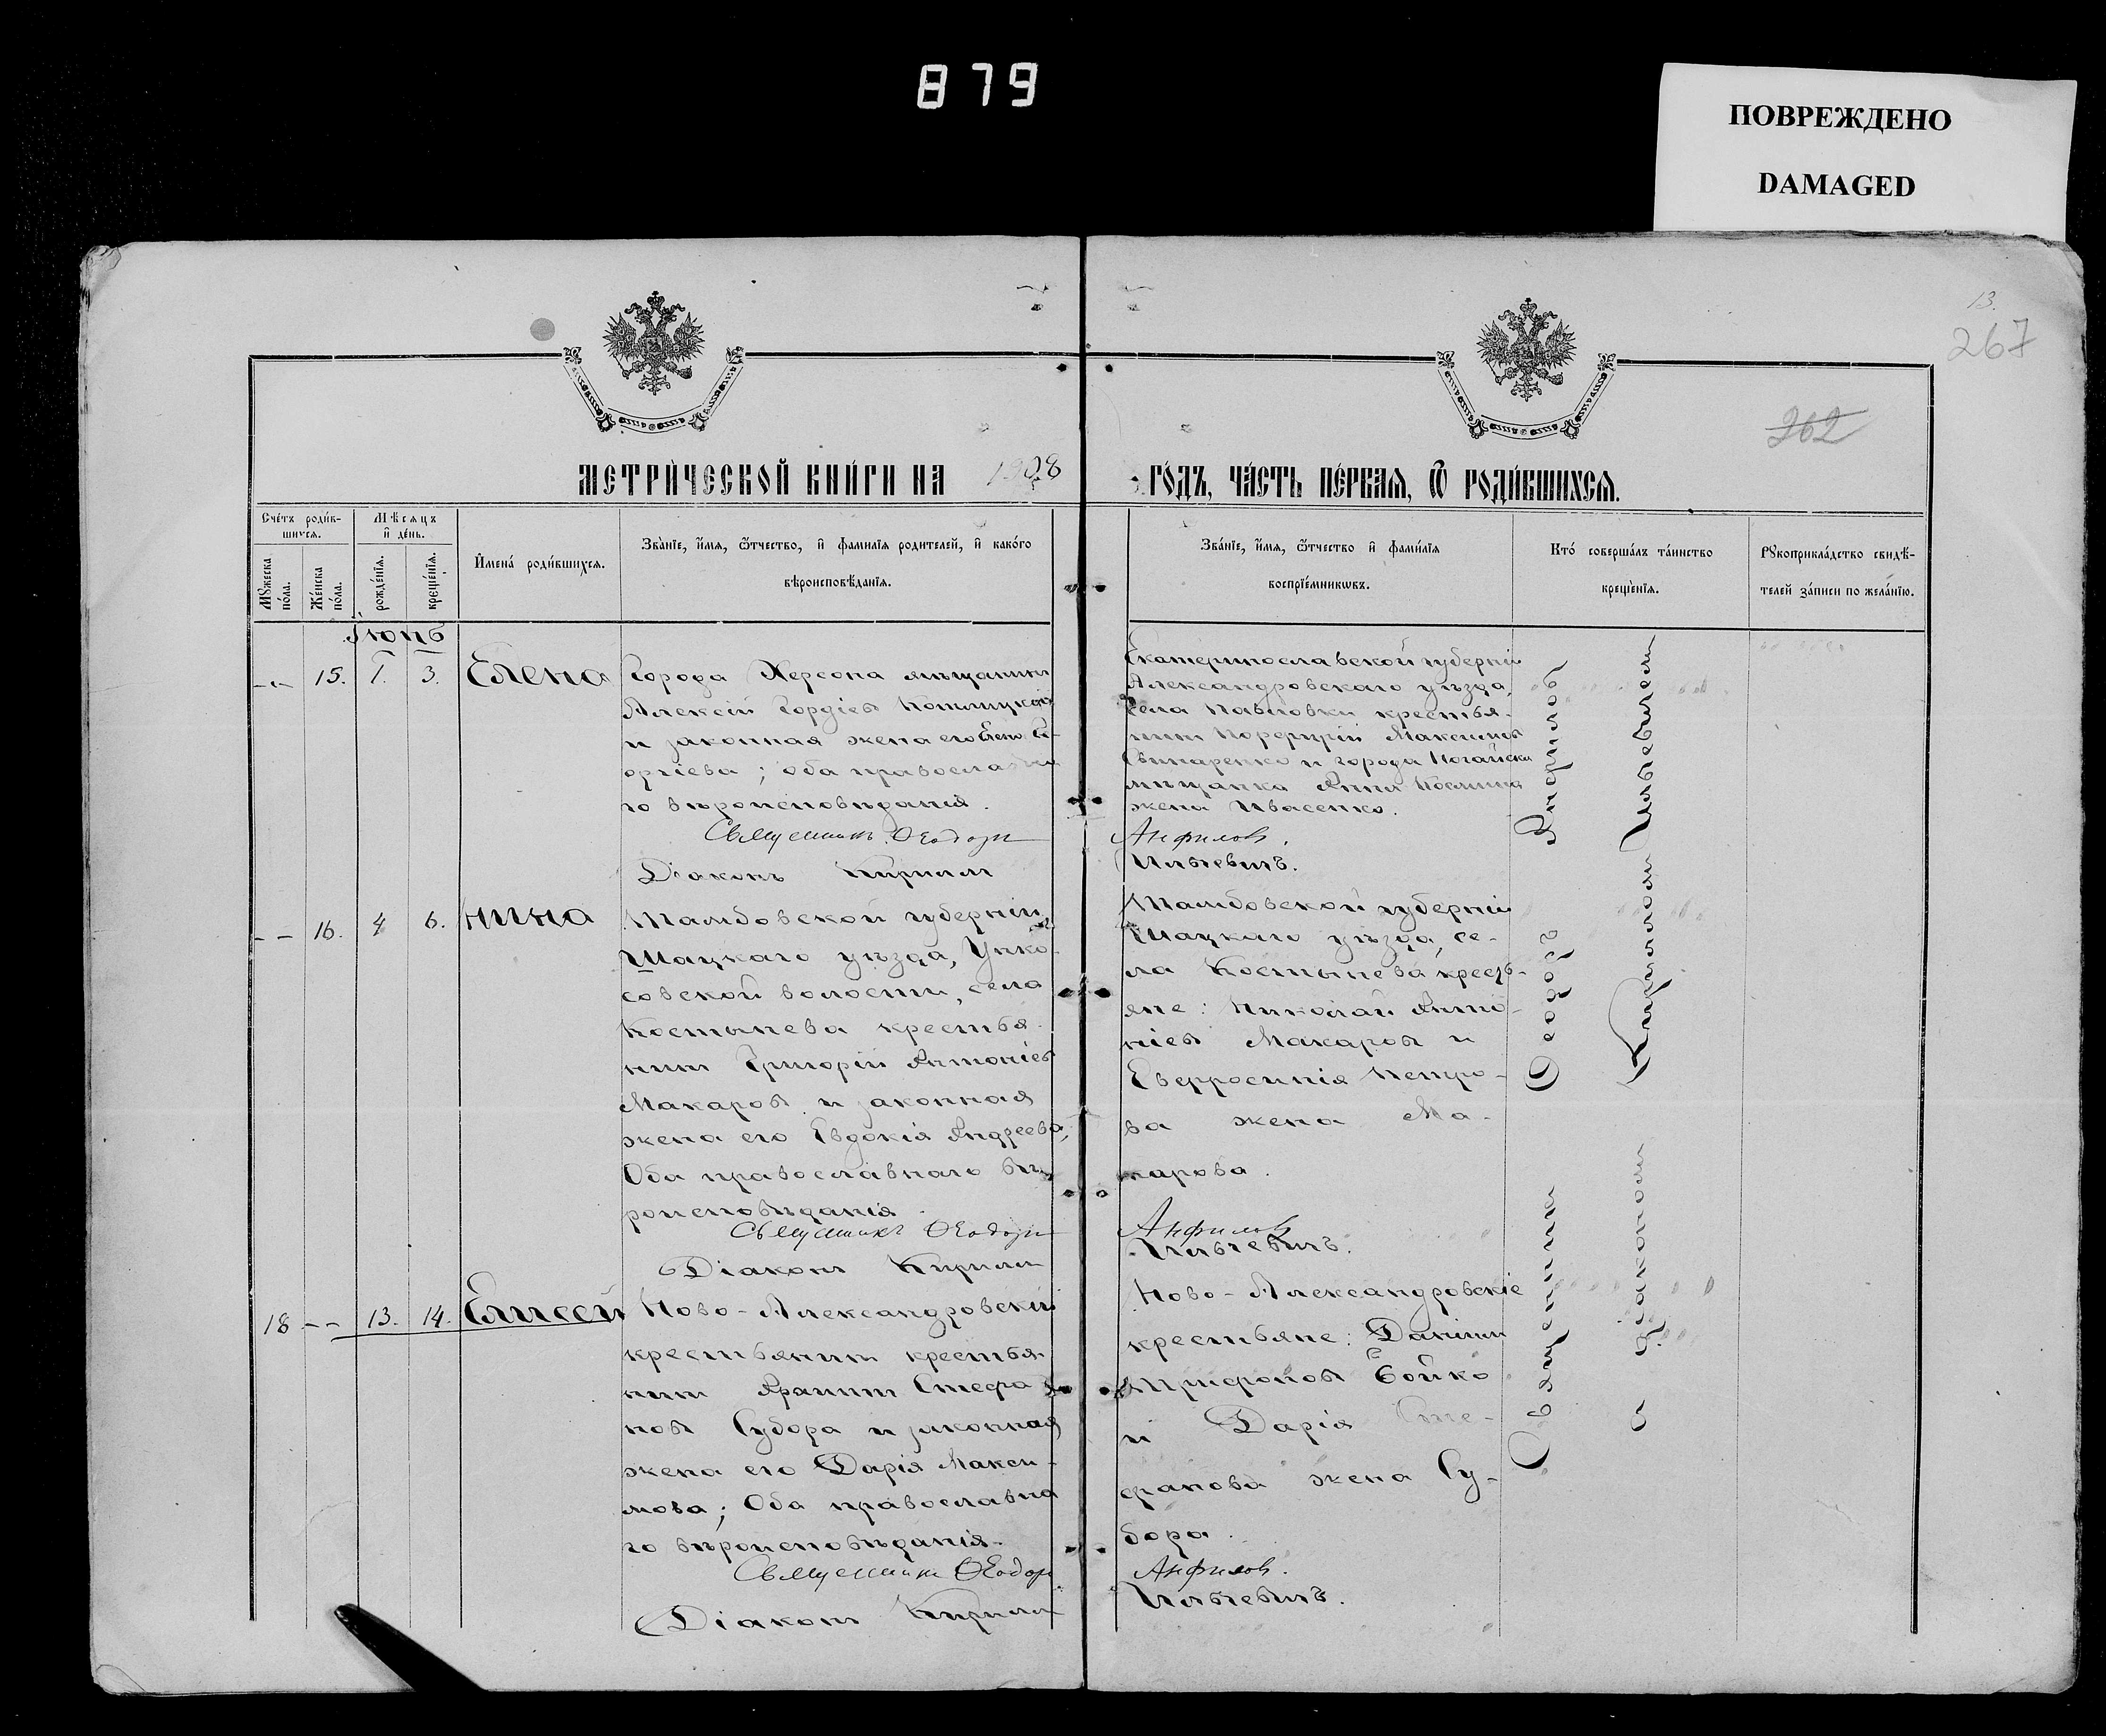 879
ПОВРЕЖДЕНО
DAMAGED
13.
267
262
МЕТРИЧЕСКОЙ КНИГИ НА 1908 ГОДЪ, ЧАСТЬ ПЕРВАЯ, Ѿ РОДИВШИХСЯ.
Счетъ родившихся.
Мужеска пола.
Женска пола.
Мѣсяцъ и день.
рожденія.
крещенія.
Имена родившихся.
Званіе, имя, ѿтчество, и фамилія родителей, и какого
вѣроисповѣданія.
Званіе, имя, ѿтчество и фамилія
воспріемникωвъ.
Кто совершалъ таинство
крещенія.
Рукоприкладство свидѣ-
телей записи по желанію.
Іюнь
15. 1. 3. Елена
Города Херсона мѣщанинъ
Алексій Гордіевъ
и законная жена его Елена Ге-
оргіева; оба православна
го вѣроисповѣданія.
Священникъ Ѳеодоръ
Діаконъ Кириллъ
Екатеринославской губерніи
Александровскаго уѣзда,
села Павловки крестья-
нинъ Порфирій Максимовъ
Свинаренко и города Ногайска
мѣщанка Анна Косьмина
жена Ивасенко.
Анфиловъ.
Ильчевичъ.
16. 4 6. Нина
Тамбовской губерніи,
Шацкаго уѣзда, Унко-
совской волости, села
Костылева крестья-
нинъ Григорій Антоніевъ
Макаровъ и законная
жена его Евдокія Андреева,
Оба православнаго вѣ-
роисповѣданія.
Священникъ Ѳеодоръ
Діаконъ Кириллъ
Тамбовской губерніи
Шацкаго уѣзда, се-
ла Костылева кресть-
яне: Николай Анто-
ніевъ Макаровъ и
Евфросинія Петро-
ва жена Ма-
карова.
Анфиловъ
Ильчевичъ.
18 13. 14. Елисей
Ново-Александровскій
крестьянинъ крестья-
нинъ Стефа-
новъ Субора и законная
жена его Дарія Макси-
мова; Оба православна
го вѣроисповѣданія.
Священникъ Ѳеодоръ
Діаконъ Кириллъ
Ново-Александровскіе
крестьяне: Даніилъ
Трифоновъ Бойко
и Дарія Сте-
фанова жена Су-
бора.
Анфиловъ.
Ильчевичъ.
Священникъ Ѳеодоръ Анфиловъ
с діакономъ Кирилломъ Ильчевичемъ